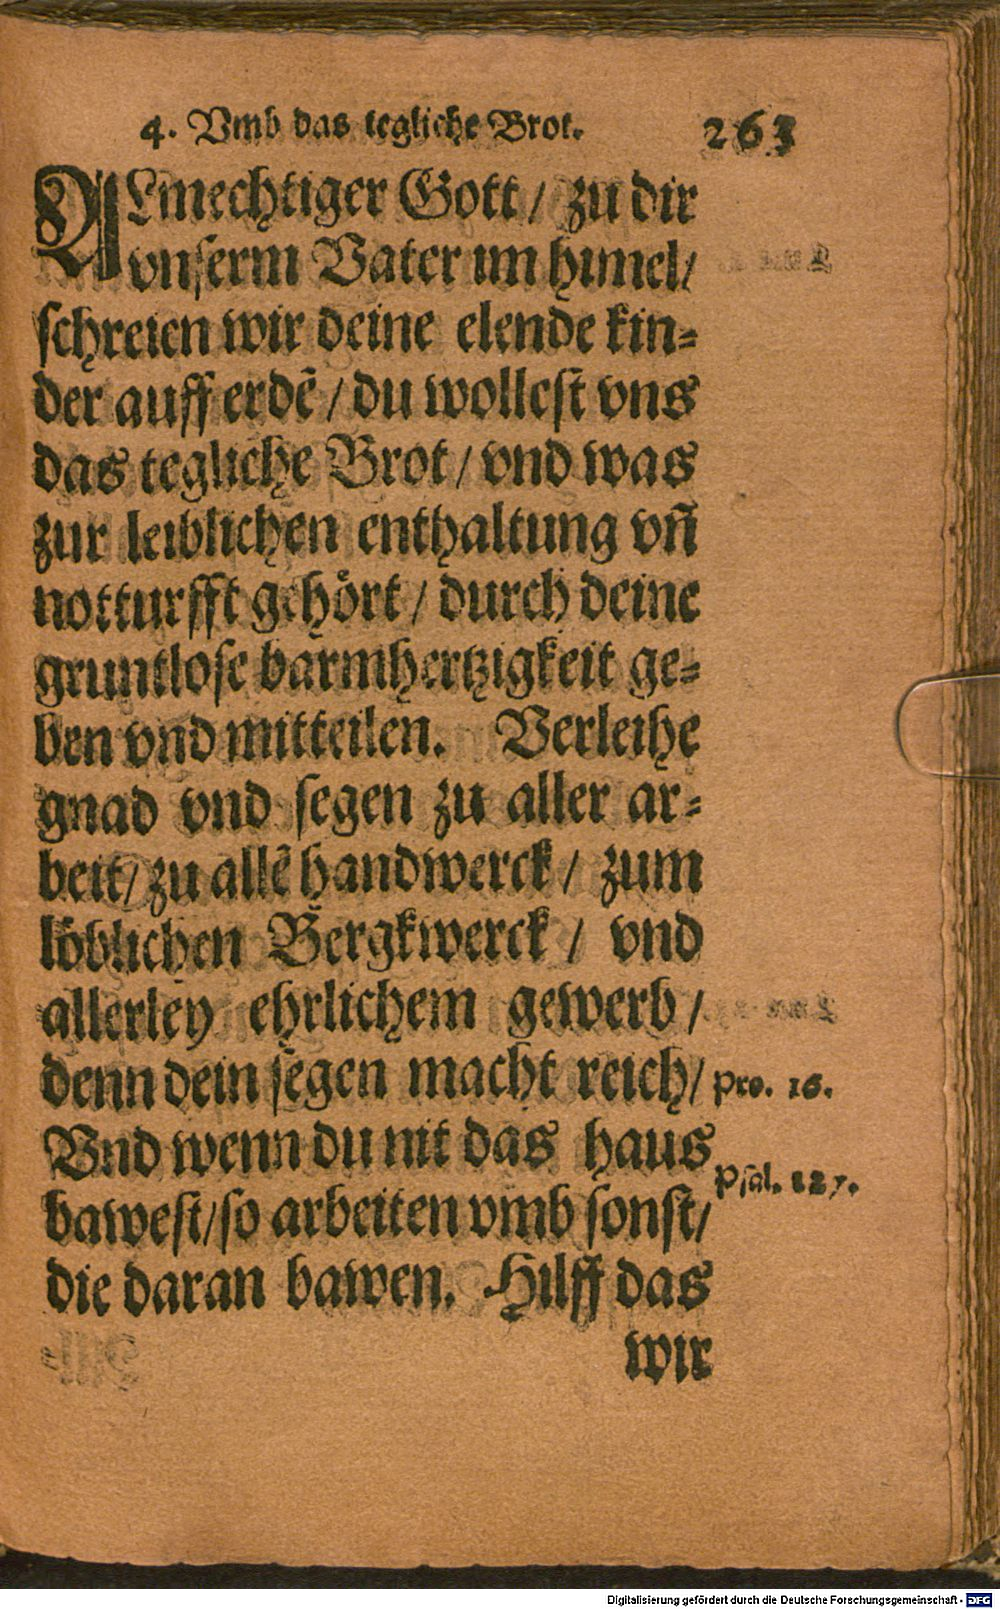 4. Vmb das tegliche Brot. 263
ALmechtiger Gott / zu dir
vnserm Vater im himel /
schreien wir deine elende kin-
der auff erdẽ / du wollest vns
das tegliche Brot / vnd was
zur leiblichen enthaltung vñ
notturfft gehört / durch deine
gruntlose barmhertzigkeit ge-
ben vnd mitteilen. Verleihe
gnad vnd segen zu aller ar-
beit / zu allẽ handwerck / zum
löblichen Bergkwerck / vnd
allerley ehrlichem gewerb /
denn dein segen macht reich / Pro. 16.
Vnd wenn du nit das haus
Psal. 127.
bawest / so arbeiten vmb sonst /
die daran bawen. Hilff das
wir
Digitalisierung gefördert durch die Deutsche Forschungsgemeinschaft - DFG